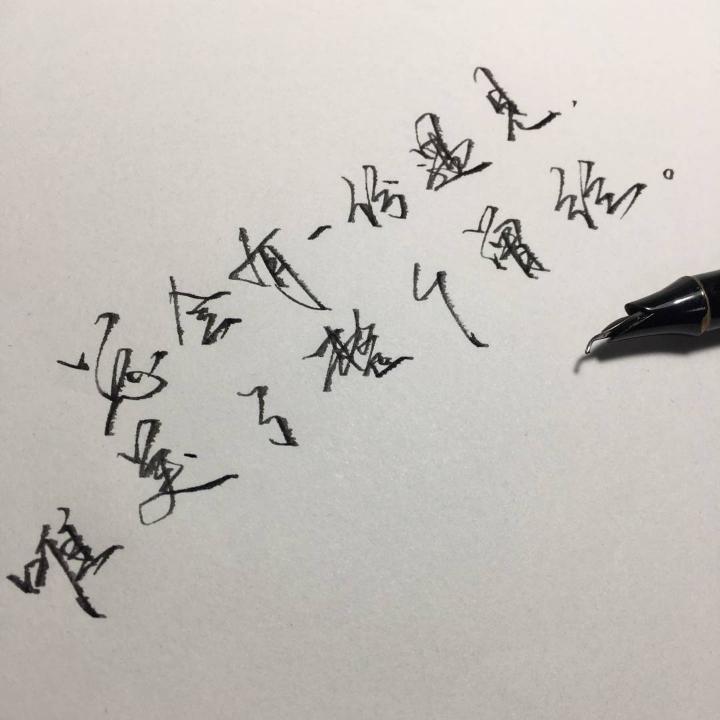 总会有一场遇见,
唯美了整个曾经。